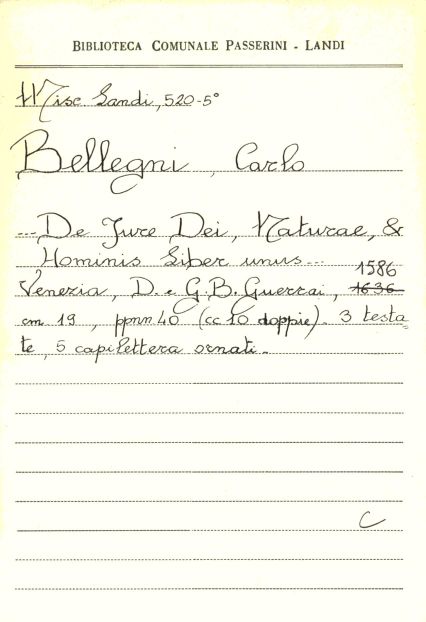 BIBLIOTECA COMUNALE PASSERINI - LANDI
Misc Landi, 520-5°
Bellegni, Carlo
...De Jure Dei, Naturae, &
Hominis Liber unus...
1586
Venezia, D. e G.B. Guerrai, 1636
cm 19, ppnn 40 (cc 10 doppie). 3 testa
te, 5 capilettera ornati.
C